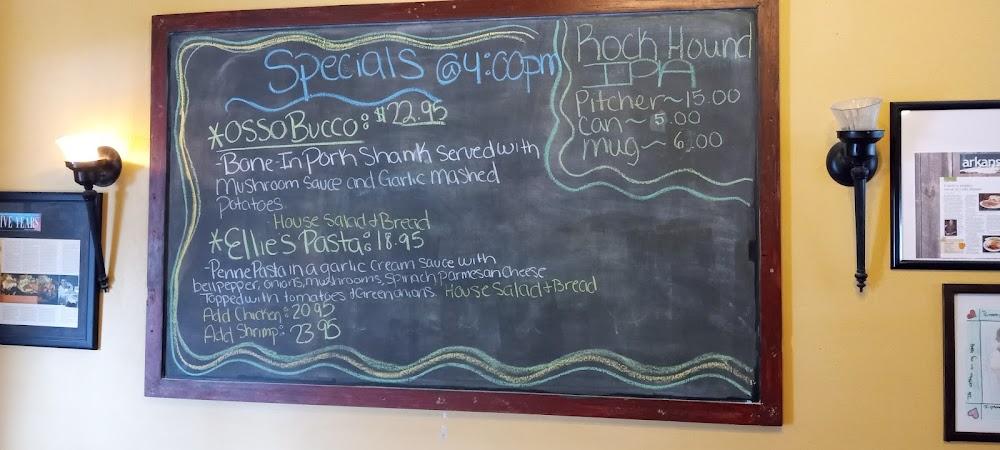 Specials @4:00pm
*OSSO BUCCO: $22.95
-Bone-In Pork Shank Served with
Mushroom Sauce and Garlic Mashed
Potatoes
-House Salad & Bread
*Ellie's Pasta: 18.95
-Penne Pasta in a garlic Cream Sauce with
bellpepper, onions, mushrooms, Spinach, Parmesan Cheese
Topped with tomatoes & Green onions. House Salad & Bread
Add Chicken: 20.95
Add Shrimp: 23.95
Rock Hound
IPA
Pitcher~15.00
Can~ 5.00
mug~ 6.00
IVE YEARS
arkans